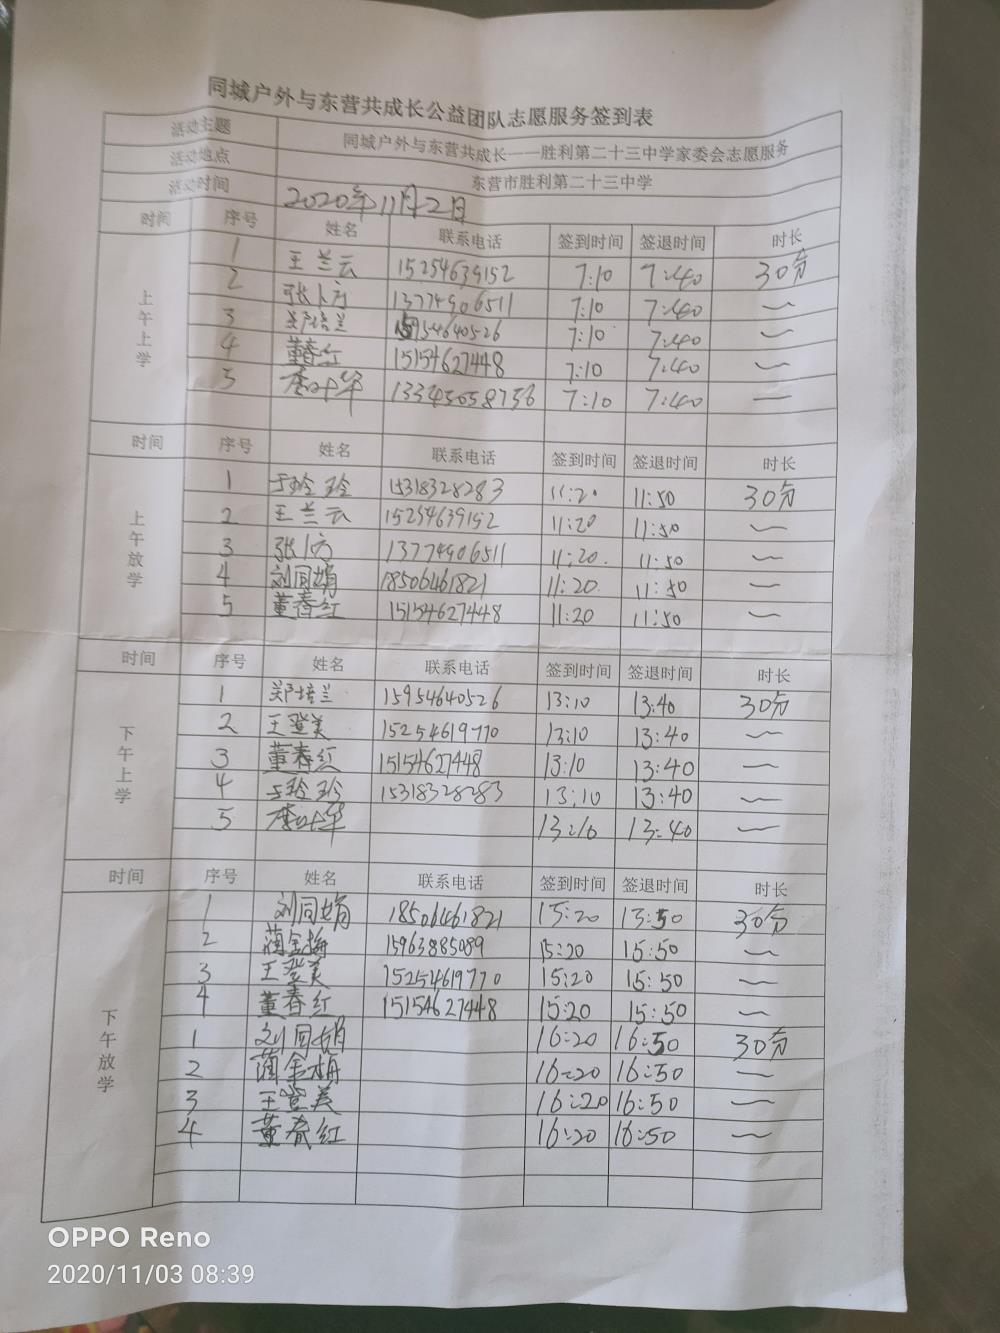 同城户外与东营共成长公益团队志愿服务签到表
活动主题 同城户外与东营共成长——胜利第二十三中学家委会志愿服务
活动地点 东营市胜利第二十三中学
活动时间 2020年11月2日
时间 序号 姓名 联系电话 签到时间 签退时间 时长
上午上学
1 王兰云 15254639152 7:10 7:40 30分
2 13774906511 7:10 7:40 〜
3 郑培兰 15954640526 7:10 7:40 〜
4 董春红 15154627448 7:10 7:40 〜
5 李叶华 7:10 7:40 —
时间 序号 姓名 联系电话 签到时间 签退时间 时长
上午放学
1 于玲玲 15318328283 11:20 11:50 30分
2 王兰云 15254639152 11:20 11:50 〜
3 13774906511 11:20. 11:50 〜
4 刘同娟 18506461821 11:20. 11:50 〜
5 董春红 15154627448 11:20 11:50 〜
时间 序号 姓名 联系电话 签到时间 签退时间 时长
下午上学
1 郑培兰 15954640526 13:10 13:40 30分
2 王登美 15254619770 13:10 13:40 〜
3 董春红 15154627448 13:10 13:40 〜
4 于玲玲 15318328283 13:10 13:40 〜
5 李叶华 13:10 13:40 〜
时间 序号 姓名 联系电话 签到时间 签退时间 时长
下午放学
1 刘同娟 18506461821 15:20 15:50 30分
2 蔺金梅 15963885089 15:20 15:50 〜
3 王登美 15254619770 15:20 15:50 〜
4 董春红 15154627448 15:20 15:50 〜
1 刘同娟 16:20 16:50 30分
2 蔺金梅 16:20 16:50 〜
3 王登美 16:20 16:50 〜
4 董春红 16:20 16:50 〜
OPPO Reno
2020/11/03 08:39